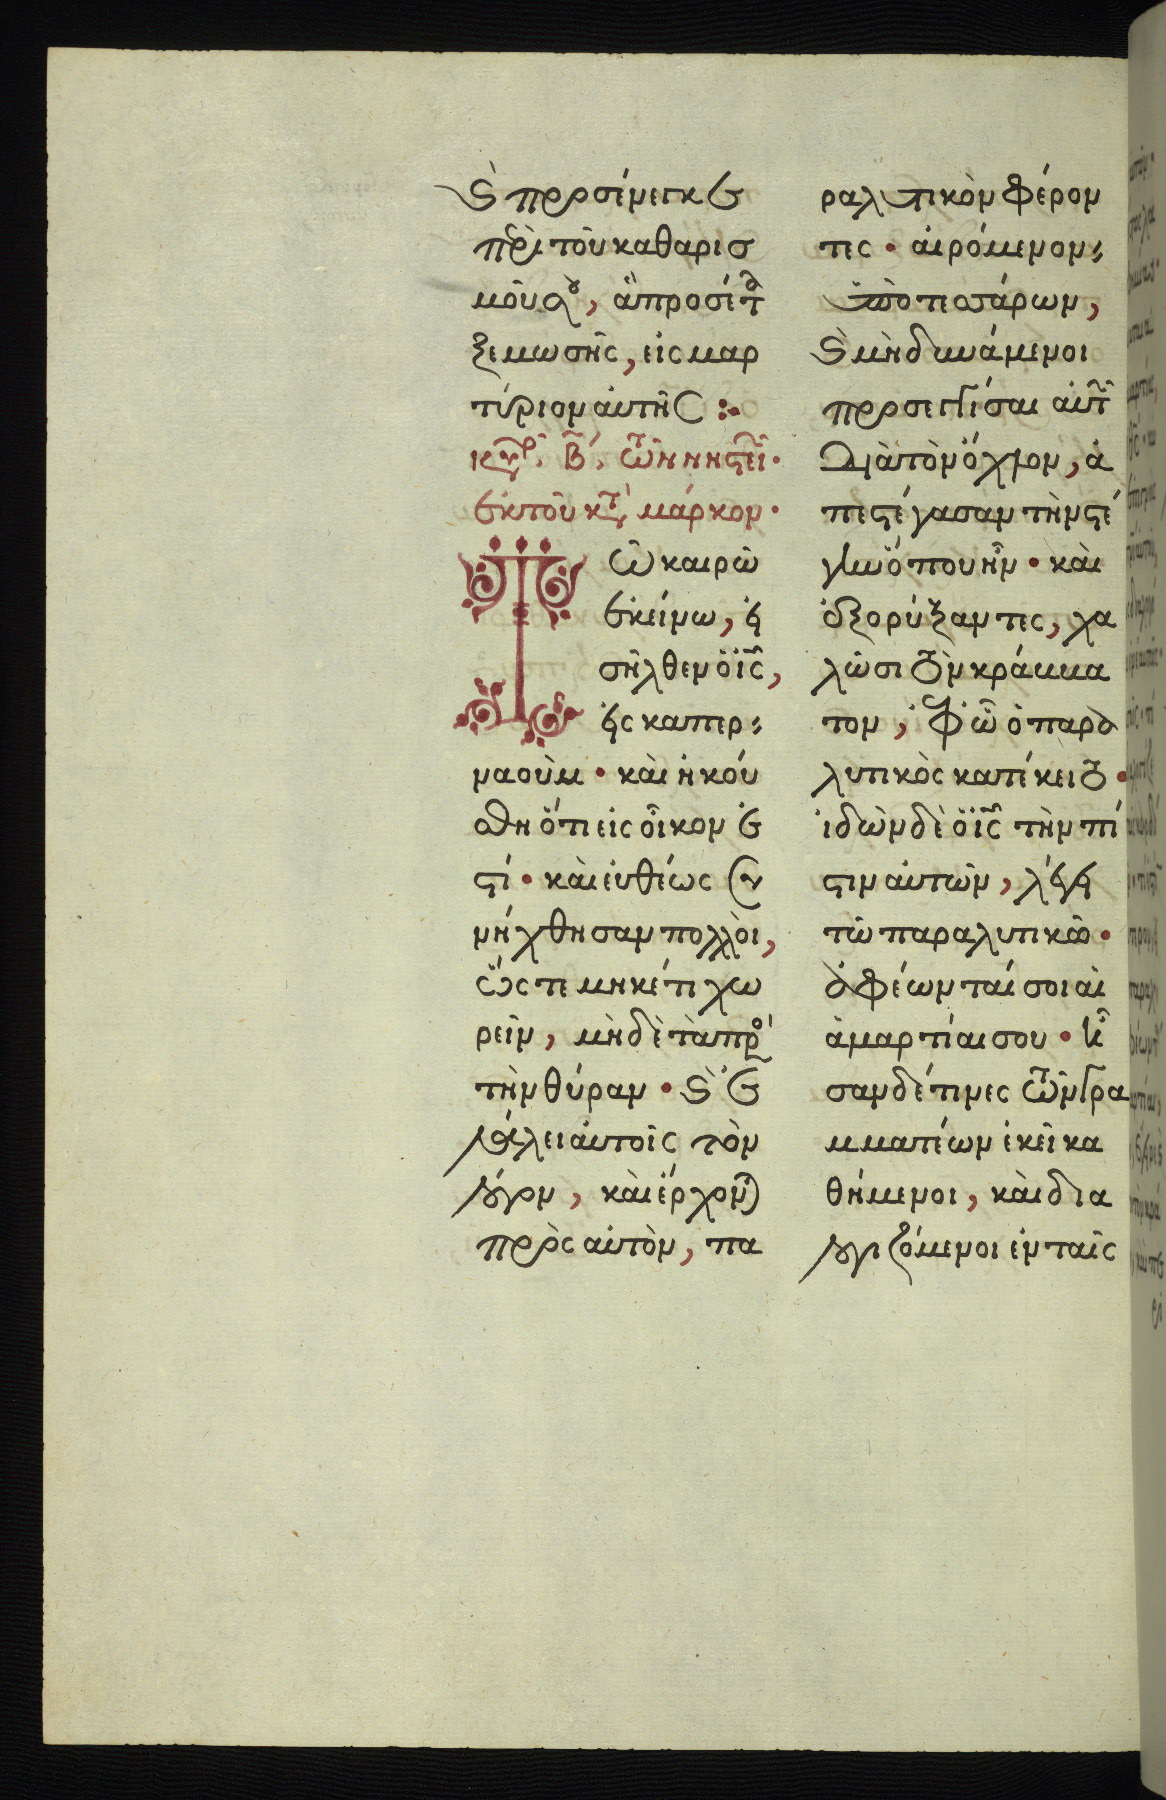 καὶ προσένεγκε
περὶ τοῦ καθαρισ
μοῦ σου, ἃ προσέτα
ξε μωσῆς, εἰς μαρ
τύριον αὐτοῖς :·
κυρ. β΄. τῶν νηστει·
ἐκ τοῦ κατὰ μάρκον·
Τῶ καιρῶ
ἐκείνω, εἰ
σῆλθεν ὁ ἰς,
εἰς καπερ
ναούμ · καὶ ἠκού
σθη ὅτι εἰς οἶκον ἐ
στί · καὶ εὐθέως συ
νήχθησαν πολλοὶ,
ὥς τε μηκέτι χω
ρεῖν, μηδὲ τὰ πρὸς
τὴν θύραν · καὶ ἐ
λάλει αὐτοῖς τὸν
λόγον, καὶ ἔρχονται
πρὸς αὐτὸν, πα
ραλυτικὸν φέρον
τες · αἰρόμενον
ὑπὸ τεσσάρων,
καὶ μὴ δυνάμενοι
προσεγγίσαι αὐτῶ
διὰ τὸν ὄχλον, ἀ
πεστέγασαν τὴν στέ
γην ὅπου ἦν · καὶ
ἐξορύξαντες, χα
λῶσι τὸν κράββα
τον, ἐφ' ὧ ὁ παρα
λυτικὸς κατέκειτο ·
ἰδὼν δὲ ὁ ἰς τὴν πί
στιν αὐτῶν, λέγει
τῶ παραλυτικῶ ·
ἀφέωνταί σοι αἱ
ἁμαρτίαι σου · ἦ
σαν δέ τινες τῶν γρα
μματέων ἐκεῖ κα
θήμενοι, καὶ δια
λογιζόμενοι ἐν ταῖς